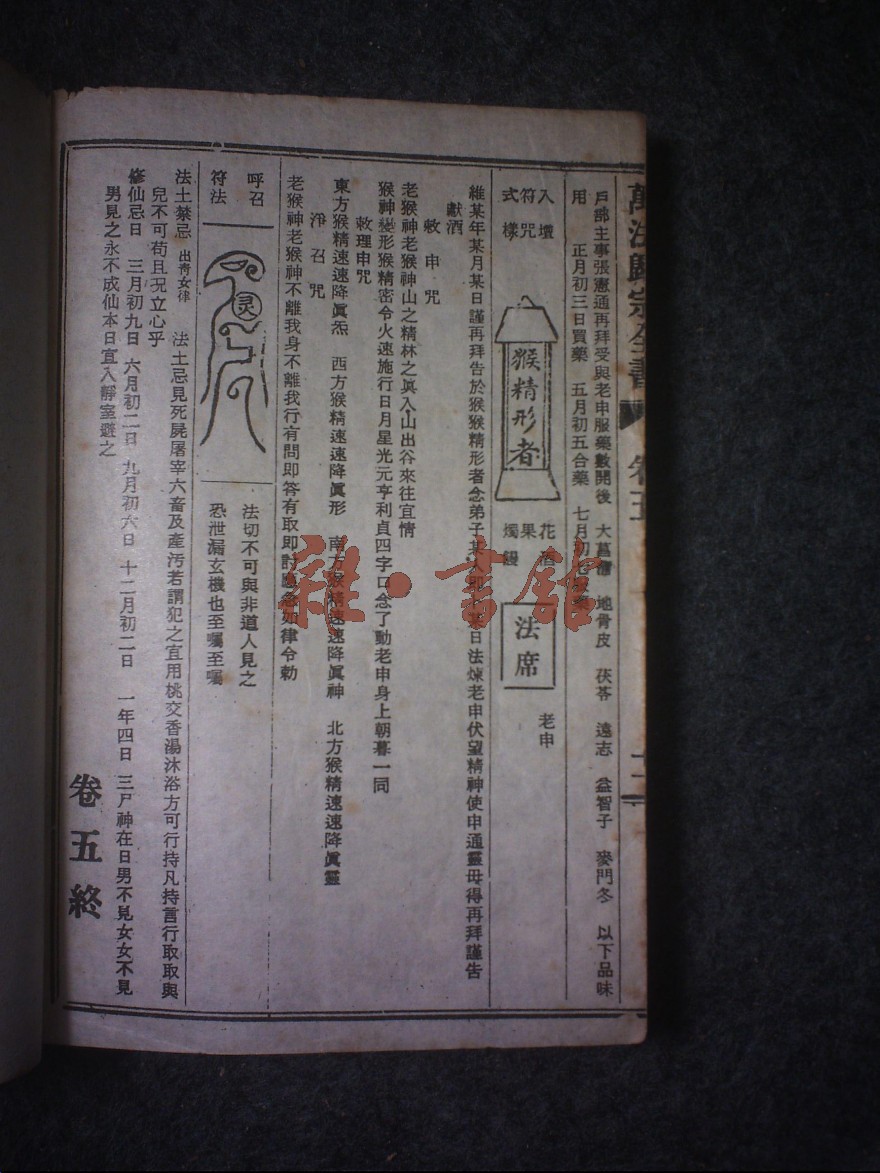 萬法歸宗全書
卷五
十二
戶部主事張憲通再拜受與老申服藥數開後　大菖蒲　地骨皮　茯苓　遠志　益智子　麥門冬　以下品味
用　正月初三日買藥　五月初五合藥　七月初七
入壇
符咒
式樣
猴精形者
花酒
果
燭饅
法席
老申
維某年某月某日謹再拜告於猴猴精形者念弟子某人即某日法煉老申伏望精神使申通靈毋得再拜謹告
獻酒
敕申咒
老猴神老猴神山之精林之眞入山出谷來往宜情
猴神變形猴精密令火速施行日月星光元亨利貞四字口念了動老申身上朝暮一同
敕理申咒
東方猴精速速降眞炁　西方猴精速速降眞形　南方猴精速速降眞神　北方猴精速速降眞靈
淨召咒
老猴神老猴神不離我身不離我行有問即答有取即討應急如律令勅
呼召
符法
灵
法切不可與非道人見之
恐泄漏玄機也至囑至囑
法士禁忌　出青女律　法士忌見死屍屠宰六畜及產汚若謂犯之宜用桃交香湯沐浴方可行持凡持言行取取與
兒不可苟且况立心乎
修仙忌日　三月初九日　六月初二日　九月初六日　十二月初二日　一年四日　三尸神在日男不見女女不見
男見之永不成仙本日宜入靜室避之
卷五終
雜·書舘